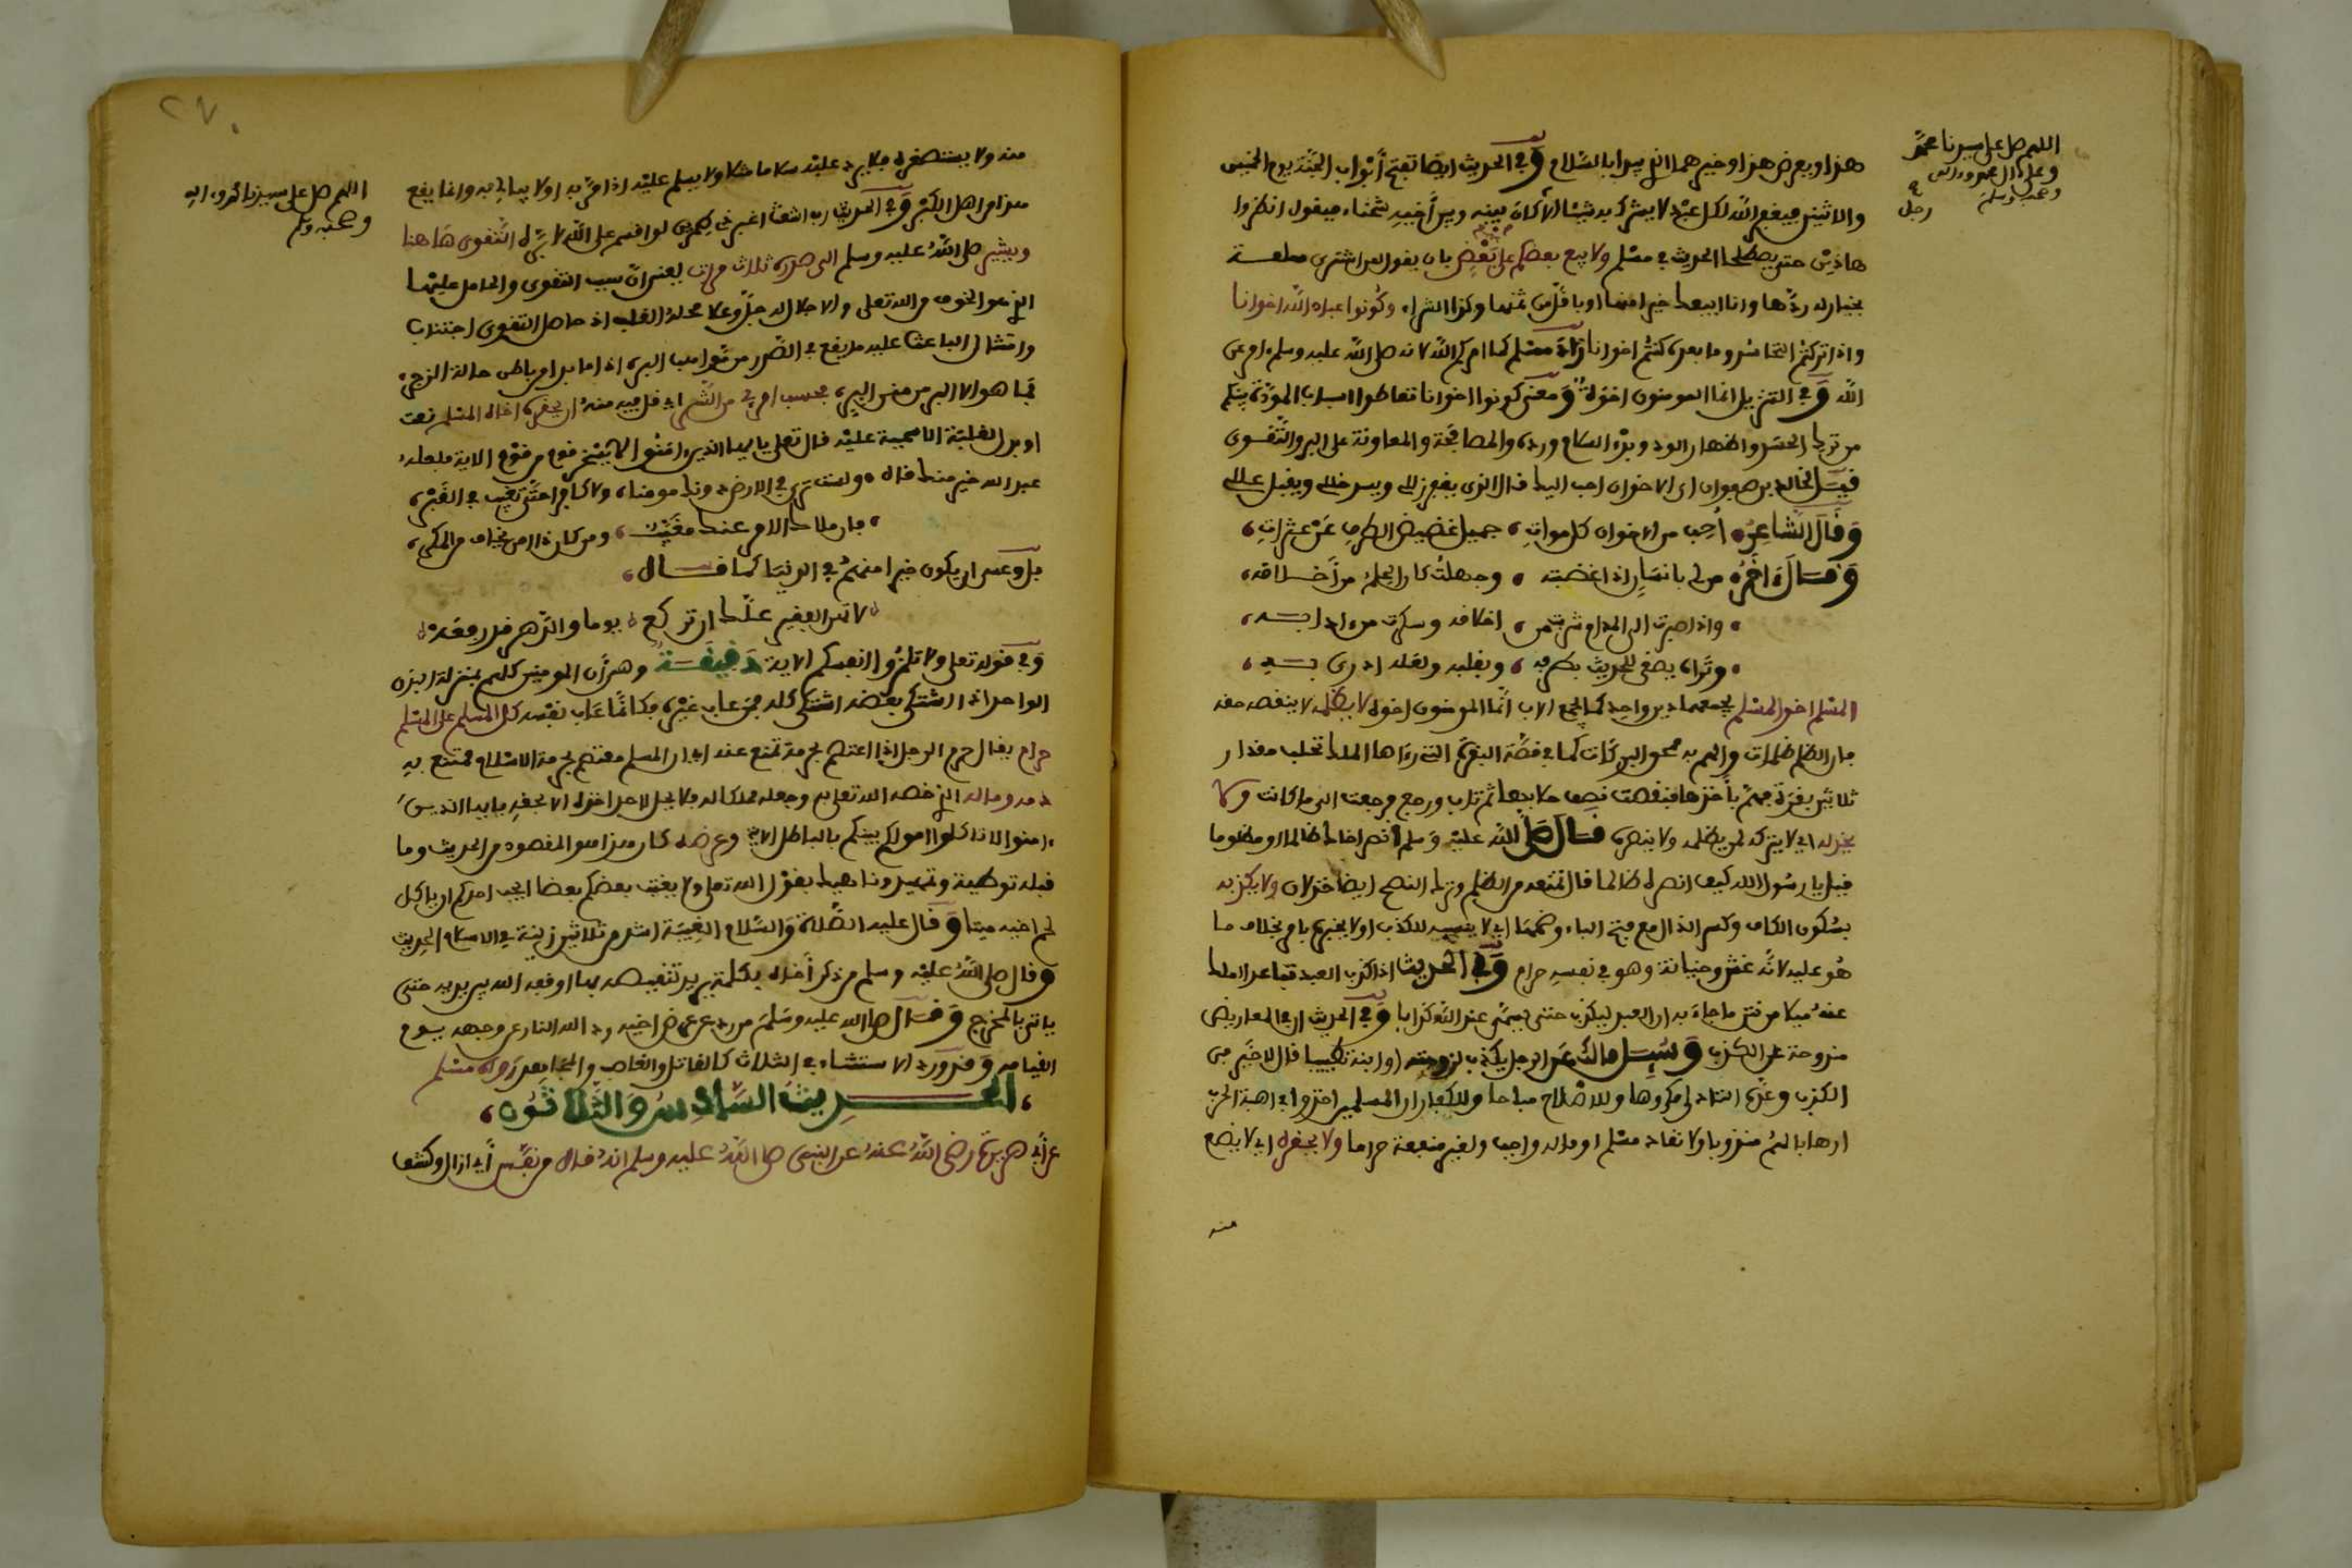 اللهم صل على سيدنا محمد
وعلى آل محمد
وصحبه وسلم
رجل
هذا ويعرض هذا وخيرهما الذي يبدأ بالسلام وفي الحديث ايضا تفتح أبواب الجنة يوم الخميس
والاثنين فيغفر الله لكل عبد لا يشرك به شيئا الا كان بينه وبين أخيه شحناء فيقول انظروا
هاذين حتى يصطلحا الحديث في مسلم ولا يبع بعضكم على بعض بان يقول لمن اشترى سلعة
بخيار له ردها وانا ابيعك خيرا منها او باقل من ثمنها وكذا الشراء وكونوا عباد الله اخوانا
واذا تركتم التحاسد وما بعده كنتم اخوانا زاد مسلم كما امركم الله لانه صلى الله عليه وسلم امر عن
الله وفي التنزيل انما المومنون اخوة ومعنى كونوا اخوانا تعاطوا اسباب المودة بينكم
من ترك الحسد واظهار الود وبذل السلام ورده والمصافحة والمعاونة على البر والتقوى
قيل لخالد بن صفوان اي الاخوان احب اليك قال الذي يغفر زللي ويسد خللي ويقبل عللي
وقال الشاعر أحب من الاخوان كل موات جميل غضيض الطرف عن عثرات
وقال اخر من لي بانسان اذا اغضبته وجهلت كان الحلم من أخلاقه
واذا صبوت الى المدام شربت من اخلاقه وسكرت من ادابه
وتراه يصغي للحديث بطرفه وبقلبه ولعله ادرى به
المسلم اخو المسلم يجمعهما دين واحد كما يجمع الاب انما المومنون اخوة لا يظلمه لا ينقصه حقه
فان الظلم ظلمات والهم به محو البركات كما في قصة البقرة التي رءاها الملك تحلب مقدار
ثلاثين بقرة فهم بأخذها فنقصت نصف حلابها ثم تاب ورجع فرجعت الى ما كانت ولا
يخذله اي لا يترك لمن يظلمه ولا ينصره قال صلى الله عليه وسلم انصر اخاك ظالما او مظلوما
قيل يا رسول الله كيف انصره ظالما قال تمنعه من الظلم وترك النصح ايضا خذلان ولا يكذبه
بسكون الكاف وكسر الذال مع فتح الياء وضمها اي لا ينسبه للكذب او لا يخبره بامر بخلاف ما
هو عليه لانه غش وخيانة وهو في نفسه حرام وفي الحديث اذا كذب العبد تباعد الملك
عنه ميلا من نتن ما جاء به ان العبد ليكذب حتى يكتب عند الله كذابا وفي الحديث ان في المعاريض
مندوحة عن الكذب وسئل مالك عن الرجل يكذب لزوجته او ابنه تطييبا قال لا خير في
الكذب وعن التتادلي مكروها وللاصلاح مباحا وللكفار ان المسلمين اخذوا في اهبة الحرب
ارهابا لهم مندوبا ولانقاذ مسلم او ماله واجب ولغير منفعة حراما ولا يحقره اي لا يضع
منه
٢٧٠
اللهم صل على سيدنا محمد واله
وصحبه وسلم
منه ولا يستصغره فلا يرد عليه سلاما مثلا ولا يسلم عليه اذا مر به او لا يبالي به وانما يقع
هذا من اهل الكبر وفي الحديث رب اشعث اغبر ذي طمرين لو اقسم على الله لابره التقوى هاهنا
ويشير صلى الله عليه وسلم الى صدره ثلاث مرات يعني ان سبب التقوى والحامل عليها
الذي هو الخوف من الله تعلى والاجلال له جل وعلا محله القلب اذ حاصل التقوى اجتناب
وامتثال الباعث عليه ما يقع في الصدر من
بحسب امرئ من الشر اي في دينه ان يحقر اخاه المسلم
عليه قال تعلى يا ايها الذين ءامنوا لا يسخر قوم من قوم الاية فلعله
عند الله خير منك قال ولست ترى في الارض دونك مومنا ولا كافرا حتى تغيب في القبر
فان ملاك الامر عندك مغيب ومن كان ذا امن يخاف من المكر
بل وعسى ان يكون خيرا منهم في الدنيا كما قال
لا تهن الفقير علك ان تركع يوما والدهر قد رفعه
وفي قوله تعلى ولا تلمزوا انفسكم الاية دقيقة وهي أن المومنين كلهم بمنزلة البدن
الواحد اذا اشتكى بعضه اشتكى كله فمن عاب غيره فكانما عاب نفسه كل المسلم على المسلم
حرام يقال حرم الرجل اذا اعتصم بحرمة تمنع عنه اي ان المسلم معتصم بحرمة الاسلام ممتنع به
دمه وماله الذي خصه الله تعلى به وجعله ملكا له فلا يحل لاحد اخذه الا بحقه يا ايها الذين
ءامنوا لا تاكلوا اموالكم بينكم بالباطل الاية وعرضه كان هذا هو المقصود من الحديث وما
قبله توطئة وتمهيد وناهيك بقول الله تعلى ولا يغتب بعضكم بعضا ايحب احدكم ان ياكل
لحم اخيه ميتا وقال عليه الصلاة والسلام الغيبة اشد من ثلاثين زنية في الاسلام الحديث
وقال صلى الله عليه وسلم من ذكر أخاه بكلمة يريد تنقيصه بها اوقفه الله بين يديه حتى
ياتي بالمخرج وقال صلى الله عليه وسلم من رد عن عرض اخيه رد الله النار عن وجهه يوم
القيامة وقد ورد الاستثناء في الثلاث كالقاتل والغاصب والمجاهر رواه مسلم
الحديث السادس والثلاثون
عن أبي هريرة رضي الله عنه عن النبي صلى الله عليه وسلم انه قال من نفس أي ازال وكشف